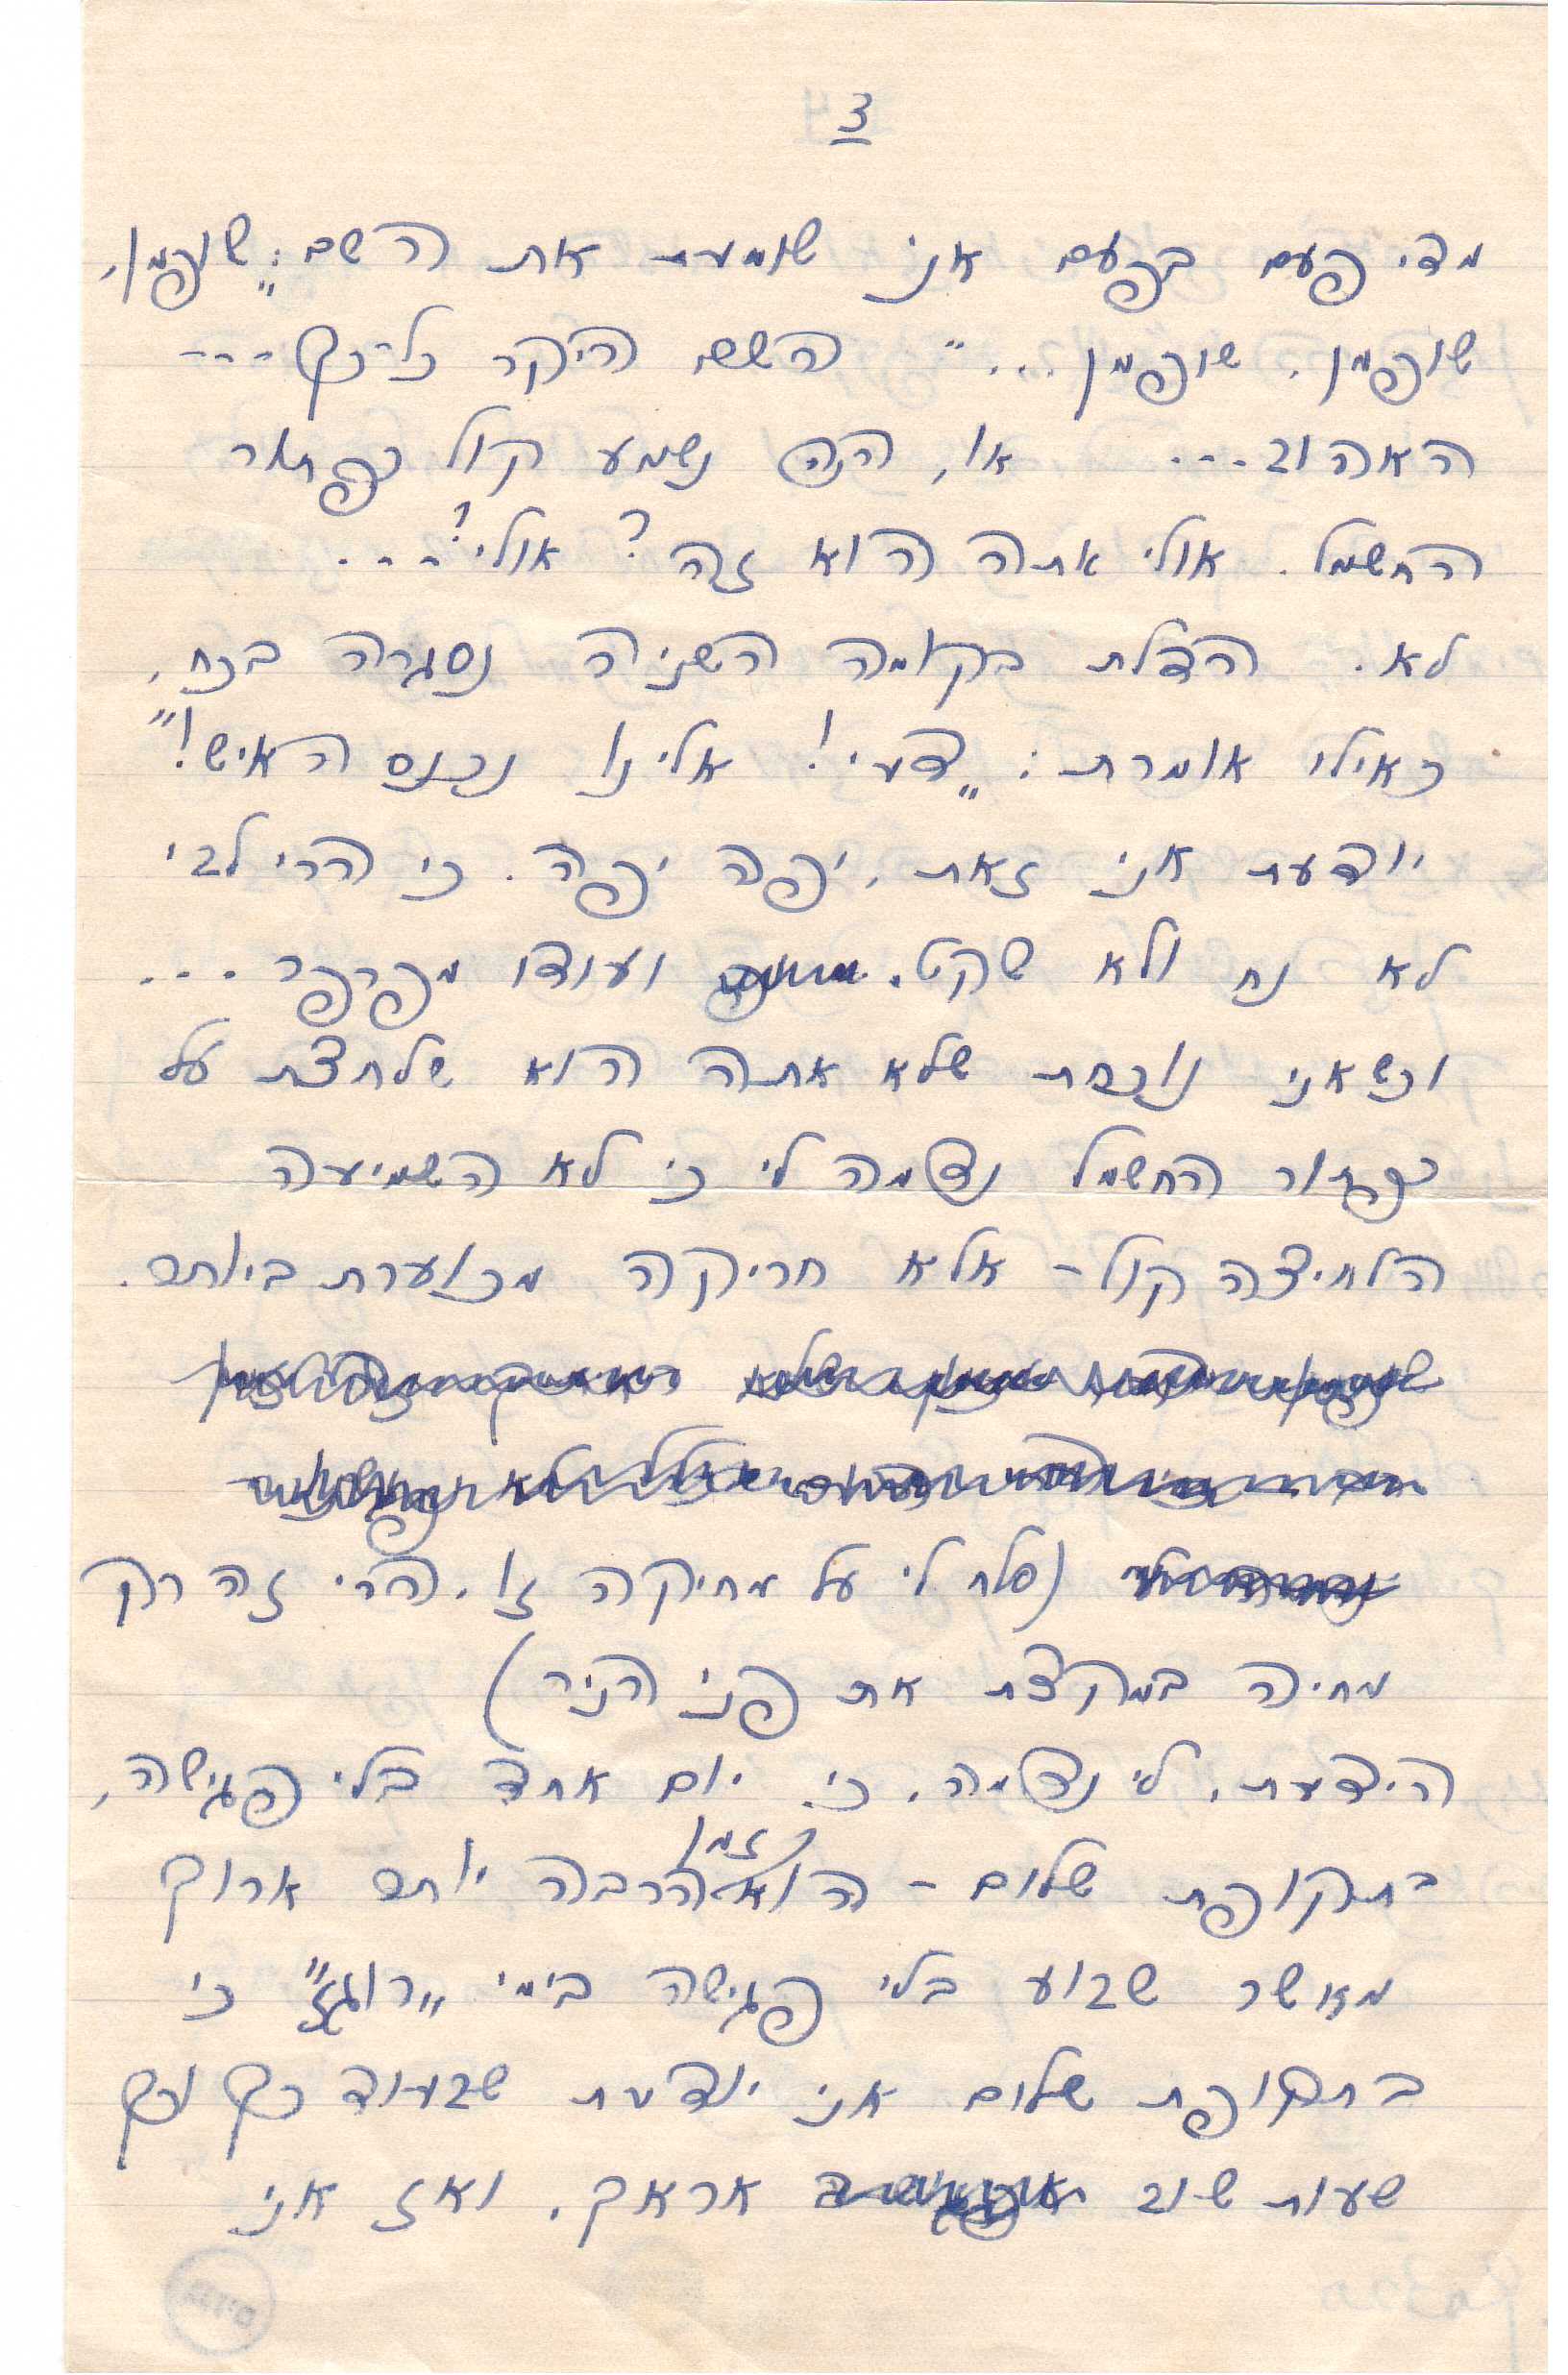 3
מדי פעם בפעם אני שומעת את השם: „שופמן,
שופמן, שופמן..." השם היקר כל-כך...
האהוב... או, הנה נשמע קול כפתור
החשמל. אולי אתה הוא זה? אולי?...
לא. הדלת בקומה השניה נסגרה בכח,
כאילו אומרת: „דעי! אלינו נכנס האיש!"
יודעת אני זאת, יפה יפה. כי הרי לבי
לא נח ולא שקט. ועודו מפרפר...
וכשאני נוכחת שלא אתה הוא שלחצת על
כפתור החשמל נדמה לי כי לא השמיעה
הלחיצה קול - אלא חריקה מכוערת ביותר.
(סלח לי על מחיקה זו, הרי זה רק
מחיה במקצת את פני הניר)
הידעת, לי נדמה, כי יום אחד בלי פגישה,
בתקופת שלום - הוא זמן הרבה יותר ארוך
מאשר שבוע בלי פגישה בימי „רוגז" כי
בתקופת שלום אני יודעת שבעוד כך וכך
שעות שוב אראך, ואז אני